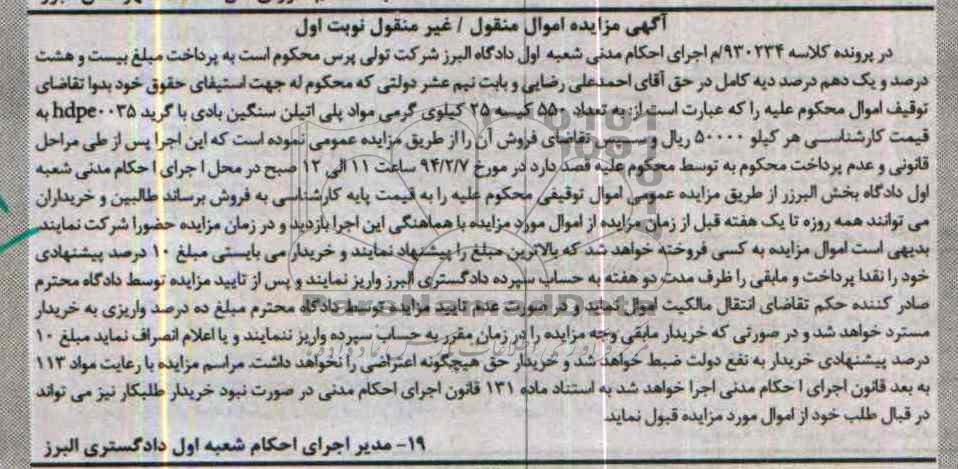 آگهی مزایده اموال منقول / غیر منقول نوبت اول
در پرونده کلاسه ۹۳۰۲۳۴/م اجرای احکام مدنی شعبه اول دادگاه البرز شرکت تولی پرس محکوم است به پرداخت مبلغ بیست و هشت
درصد و یک دهم درصد دیه کامل در حق آقای احمدعلی رضایی و بابت نیم عشر دولتی که محکوم له جهت استیفای حقوق خود بدوا تقاضای
توقیف اموال محکوم علیه را که عبارت است از: به تعداد ۵۵۰ کیسه ۲۵ کیلوی گرمی مواد پلی اتیلن سنگین بادی با گرید hdpe۰۰۳۵ به
قیمت کارشناسی هر کیلو ۵۰۰۰۰ ریال و سپس تقاضای فروش آن را از طریق مزایده عمومی نموده است که این اجرا پس از طی مراحل
قانونی و عدم پرداخت محکوم به توسط محکوم علیه قصد دارد در مورخ ۹۴/۲/۷ ساعت ۱۱ الی ۱۲ صبح در محل ا جرای ا حکام مدنی شعبه
اول دادگاه بخش البرزر از طریق مزایده عمومی اموال توقیفی محکوم علیه را به قیمت پایه کارشناسی به فروش برساند طالبین و خریداران
می توانند همه روزه تا یک هفته قبل از زمان مزایده از اموال مورد مزایده با هماهنگی این اجرا بازدید و در زمان مزایده حضورا شرکت نمایند
بدیهی است اموال مزایده به کسی فروخته خواهد شد که بالاترین مبلغ را پیشنهاد نمایند و خریدار می بایستی مبلغ ۱۰ درصد پیشنهادی
خود را نقدا پرداخت و مابقی را ظرف مدت دو هفته به حساب سپرده دادگستری البرز واریز نمایند و پس از تایید مزایده توسط دادگاه محترم
صادر کننده حکم تقاضای انتقال مالکیت اموال نمایند و در صورت عدم تایید مزایده توسط دادگاه محترم مبلغ ده درصد واریزی به خریدار
مسترد خواهد شد و در صورتی که خریدار مابقی وجه مزایده را در زمان مقرر به حساب سپرده واریز ننمایند و یا اعلام انصراف نماید مبلغ ۱۰
درصد پیشنهادی خریدار به نفع دولت ضبط خواهد شد و خریدار حق هیچگونه اعتراضی را نخواهد داشت. مراسم مزایده با رعایت مواد ۱۱۳
به بعد قانون اجرای ا حکام مدنی اجرا خواهد شد به استناد ماده ۱۳۱ قانون اجرای احکام مدنی در صورت نبود خریدار طلبکار نیز می تواند
در قبال طلب خود از اموال مورد مزایده قبول نماید.
۱۹- مدیر اجرای احکام شعبه اول دادگستری البرز
ParsNamadData